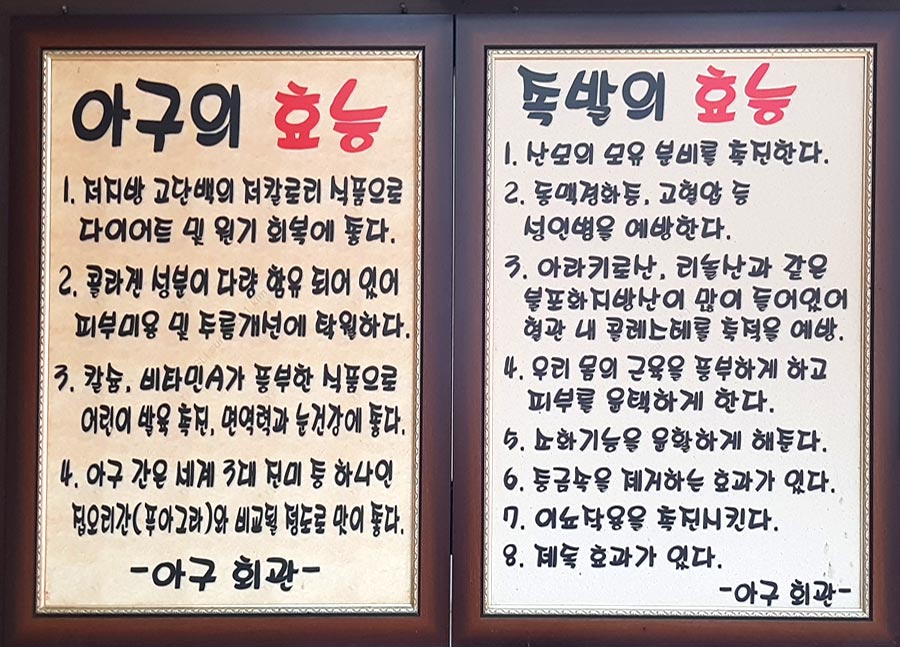 아구의 효능
1. 저지방 고단백의 저칼로리 식품으로
다이어트 및 원기 회복에 좋다.
2. 콜라겐 성분이 다량 함유 되어 있어
피부미용 및 주름개선에 탁월하다.
3. 칼슘, 비타민A가 풍부한 식품으로
어린이 발육 촉진, 면역력과 눈건강에 좋다.
4. 아구 간은 세계 3대 진미 중 하나인
집오리간(푸아그라)와 비교될 정도로 맛이 좋다.
-아구 회관-
족발의 효능
1. 산모의 모유 분비를 촉진한다.
2. 동맥경화증, 고혈압 등
성인병을 예방한다.
3. 아라키로산, 리놀산과 같은
불포화지방산이 많이 들어있어
혈관 내 콜레스테를 축적을 예방.
4. 우리 몸의 근육을 풍부하게 하고
피부를 윤택하게 한다.
5. 소화기능을 윤활하게 해준다.
6. 중금속을 제거하는 효과가 있다.
7. 이뇨작용을 촉진시킨다.
8. 제독 효과가 있다.
-아구 회관-